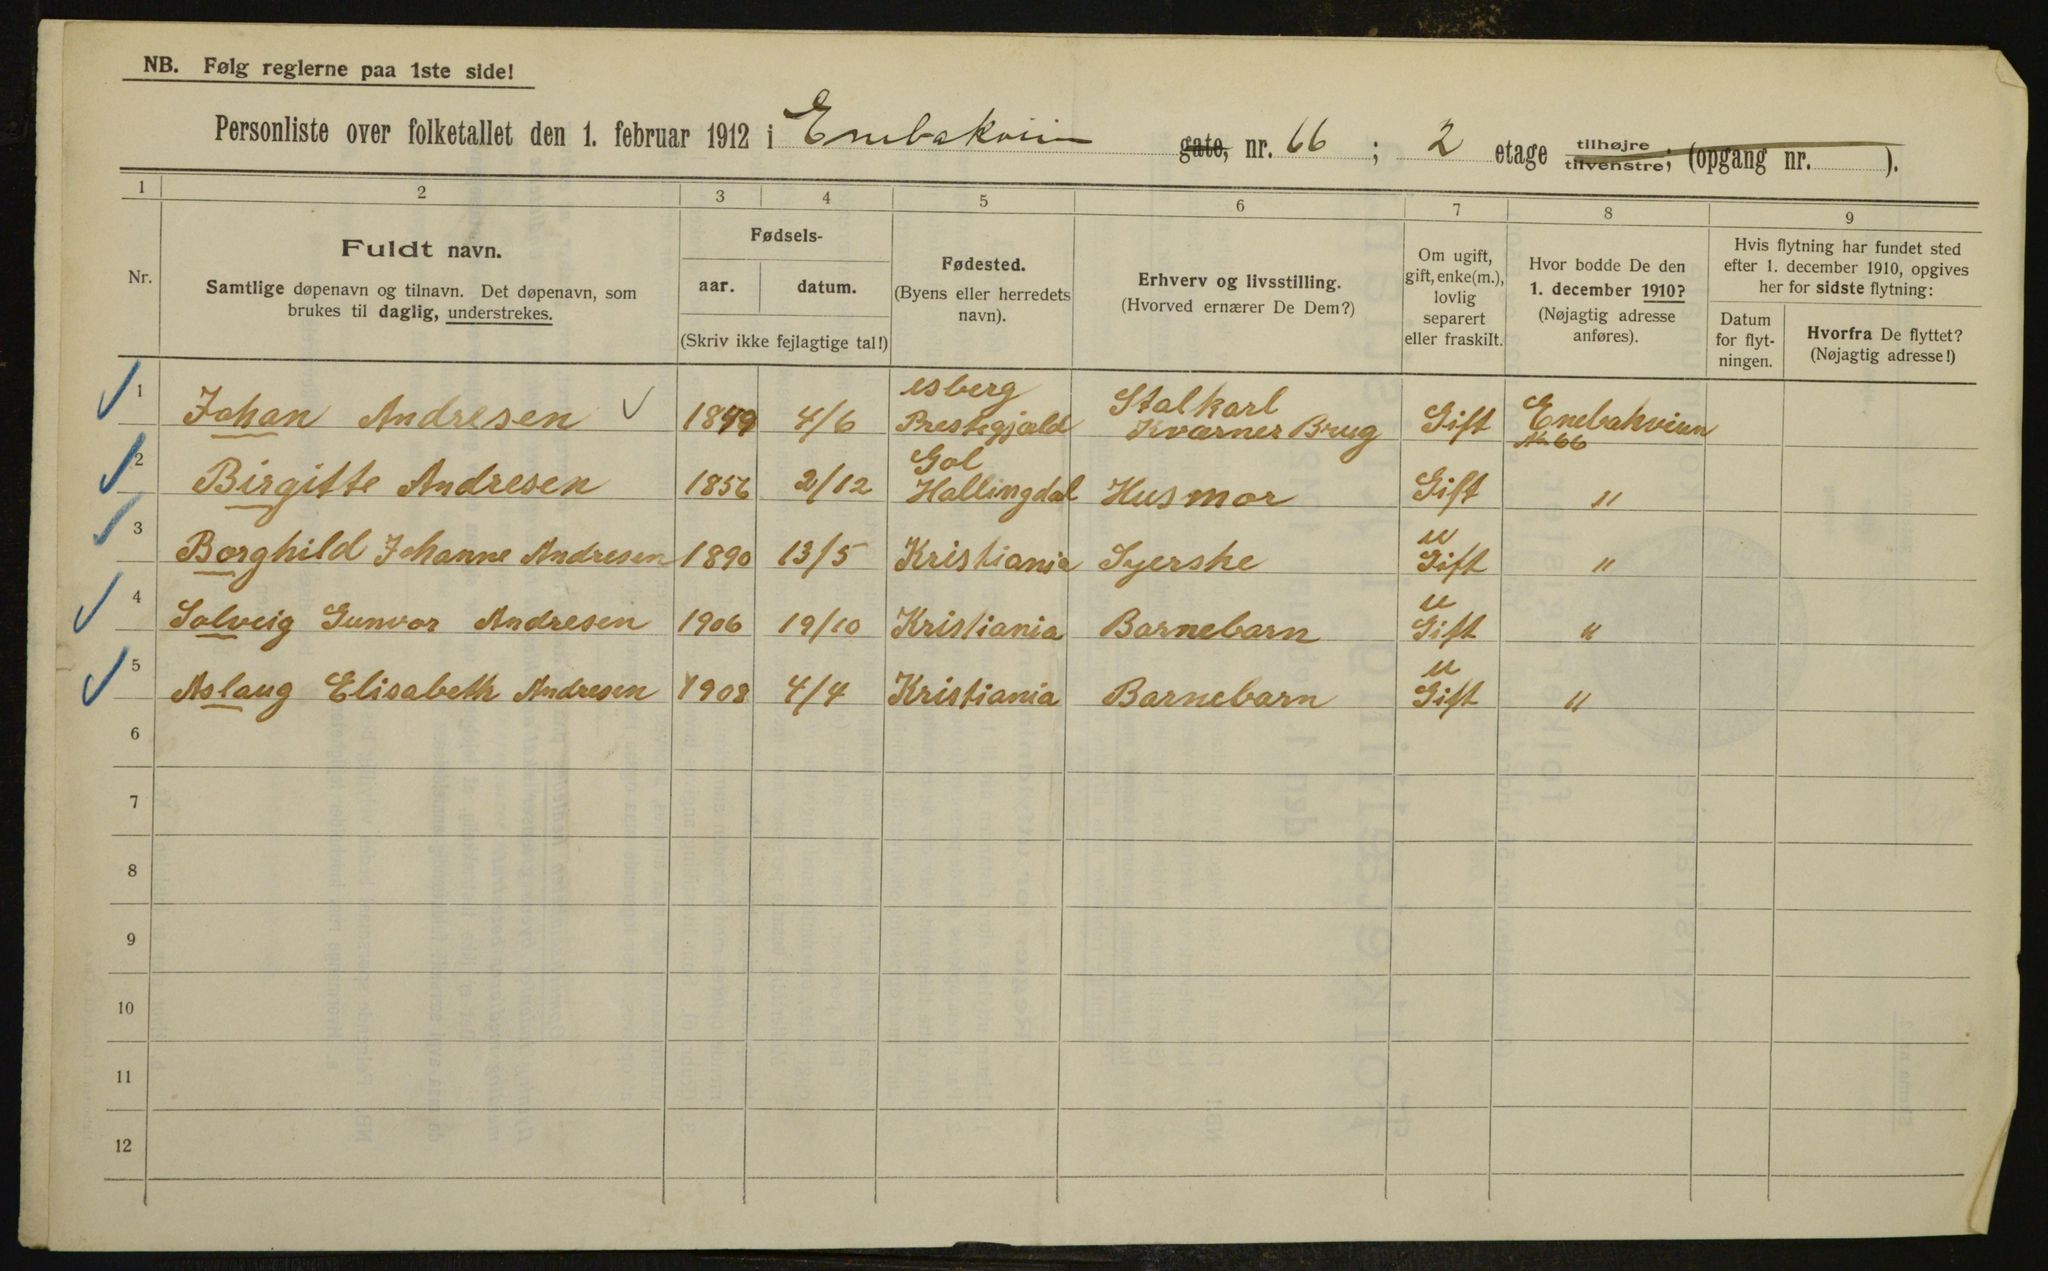 NB. Følg reglerne paa 1ste side!
Personliste over folketallet den 1. februar 1912 i Enebakveien gate, nr. 66 ; 2 etage tilhøjre tilvenstre; (opgang nr. ).
1 2 3 4 5 6 7 8 9
Nr.
Fuldt navn.
Samtlige døpenavn og tilnavn. Det døpenavn, som
brukes til daglig, understrekes.
Fødsels-
aar. datum.
(Skriv ikke fejlagtige tal!)
Fødested.
(Byens eller herredets
navn).
Erhverv og livsstilling.
(Hvorved ernærer De Dem?)
Om ugift,
gift, enke(m.),
lovlig
separert
eller fraskilt.
Hvor bodde De den
1. december 1910?
(Nøjagtig adresse
anføres).
Hvis flytning har fundet sted
efter 1. december 1910, opgives
her for sidste flytning:
Datum
for flyt-
ningen.
Hvorfra De flyttet?
(Nøjagtig adresse!)
1 Johan Andresen 1849 4/6 esberg Prestegjæld Stalkarl Kværner Brug Gift Enebakveien Nr 66
2 Birgitte Andresen 1856 2/12 Gol Hallingdal Husmor Gift "
3 Borghild Johanne Andresen 1890 13/5 Kristiania Syerske u Gift "
4 Solveig Gunvor Andresen 1906 19/10 Kristiania Barnebarn u Gift "
5 Aslaug Elisabeth Andresen 1908 4/4 Kristiania Barnebarn u Gift "
6
7
8
9
10
11
12